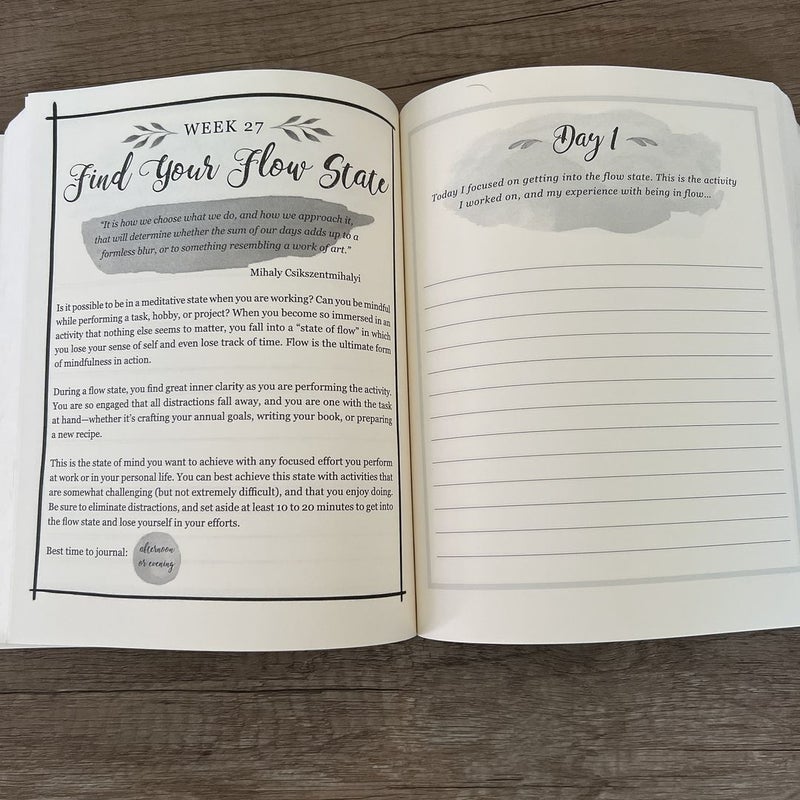 WEEK 27
Find Your Flow State
“It is how we choose what we do, and how we approach it,
that will determine whether the sum of our days adds up to a
formless blur, or to something resembling a work of art.”
Mihaly Csikszentmihalyi
Is it possible to be in a meditative state when you are working? Can you be mindful
while performing a task, hobby, or project? When you become so immersed in an
activity that nothing else seems to matter, you fall into a “state of flow” in which
you lose your sense of self and even lose track of time. Flow is the ultimate form
of mindfulness in action.
During a flow state, you find great inner clarity as you are performing the activity.
You are so engaged that all distractions fall away, and you are one with the task
at hand—whether it’s crafting your annual goals, writing your book, or preparing
a new recipe.
This is the state of mind you want to achieve with any focused effort you perform
at work or in your personal life. You can best achieve this state with activities that
are somewhat challenging (but not extremely difficult), and that you enjoy doing.
Be sure to eliminate distractions, and set aside at least 10 to 20 minutes to get into
the flow state and lose yourself in your efforts.
Best time to journal: afternoon
or evening
Day 1
Today I focused on getting into the flow state. This is the activity
I worked on, and my experience with being in flow...